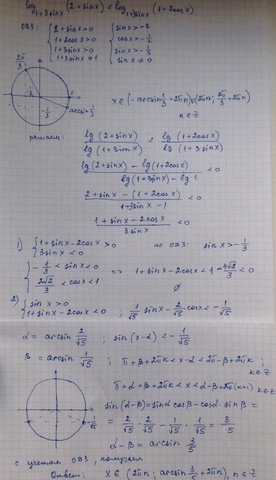 log₁₊₃sinx (2+sinx) < log₁₊₃sinx (1+2cosx)
ОДЗ: { 2+sinx>0 { sinx>-2
1+2cosx>0 cosx>-1/2
1+3sinx>0 sinx>-1/3
1+3sinx≠1 sinx≠0
2π/3
x∈(-arcsin 1/3+2πn; 2πn)∪(2πn; 2π/3+2πn)
n∈Z
решаем: lg(2+sinx)/lg(1+3sinx) < lg(1+2cosx)/lg(1+3sinx)
(lg(2+sinx) - lg(1+2cosx))/(lg(1+3sinx) - lg1) < 0
(2+sinx-(1+2cosx))/(1+3sinx-1) < 0
(1+sinx-2cosx)/(3sinx) < 0
1) { 1+sinx-2cosx>0 по ОДЗ: sinx>-1/3
{ -1/3<sinx<0 => 1+sinx-2cosx<1-4√2/3<0
2√2/3<cosx<1 ∅
2) { sinx>0
1+sinx-2cosx<0 ; 1/√5 sinx - 2/√5 cosx < -1/√5
α=arcsin 2/√5 ; sin(x-α)<-1/√5
β=arcsin 1/√5 ; π+β+2πk<x-α<2π-β+2πk ; k∈Z
π+α+β+2πk<x<α-β+2π(k+1) k∈Z
sin(α-β)=sinα cosβ-cosα·sinβ=
= 2/√5·2/√5 - 1/√5·1/√5 = 3/5
α-β=arcsin 3/5
с учетом ОДЗ, получаем
Ответ: x∈(2πn; arcsin 3/5+2πn), n∈Z